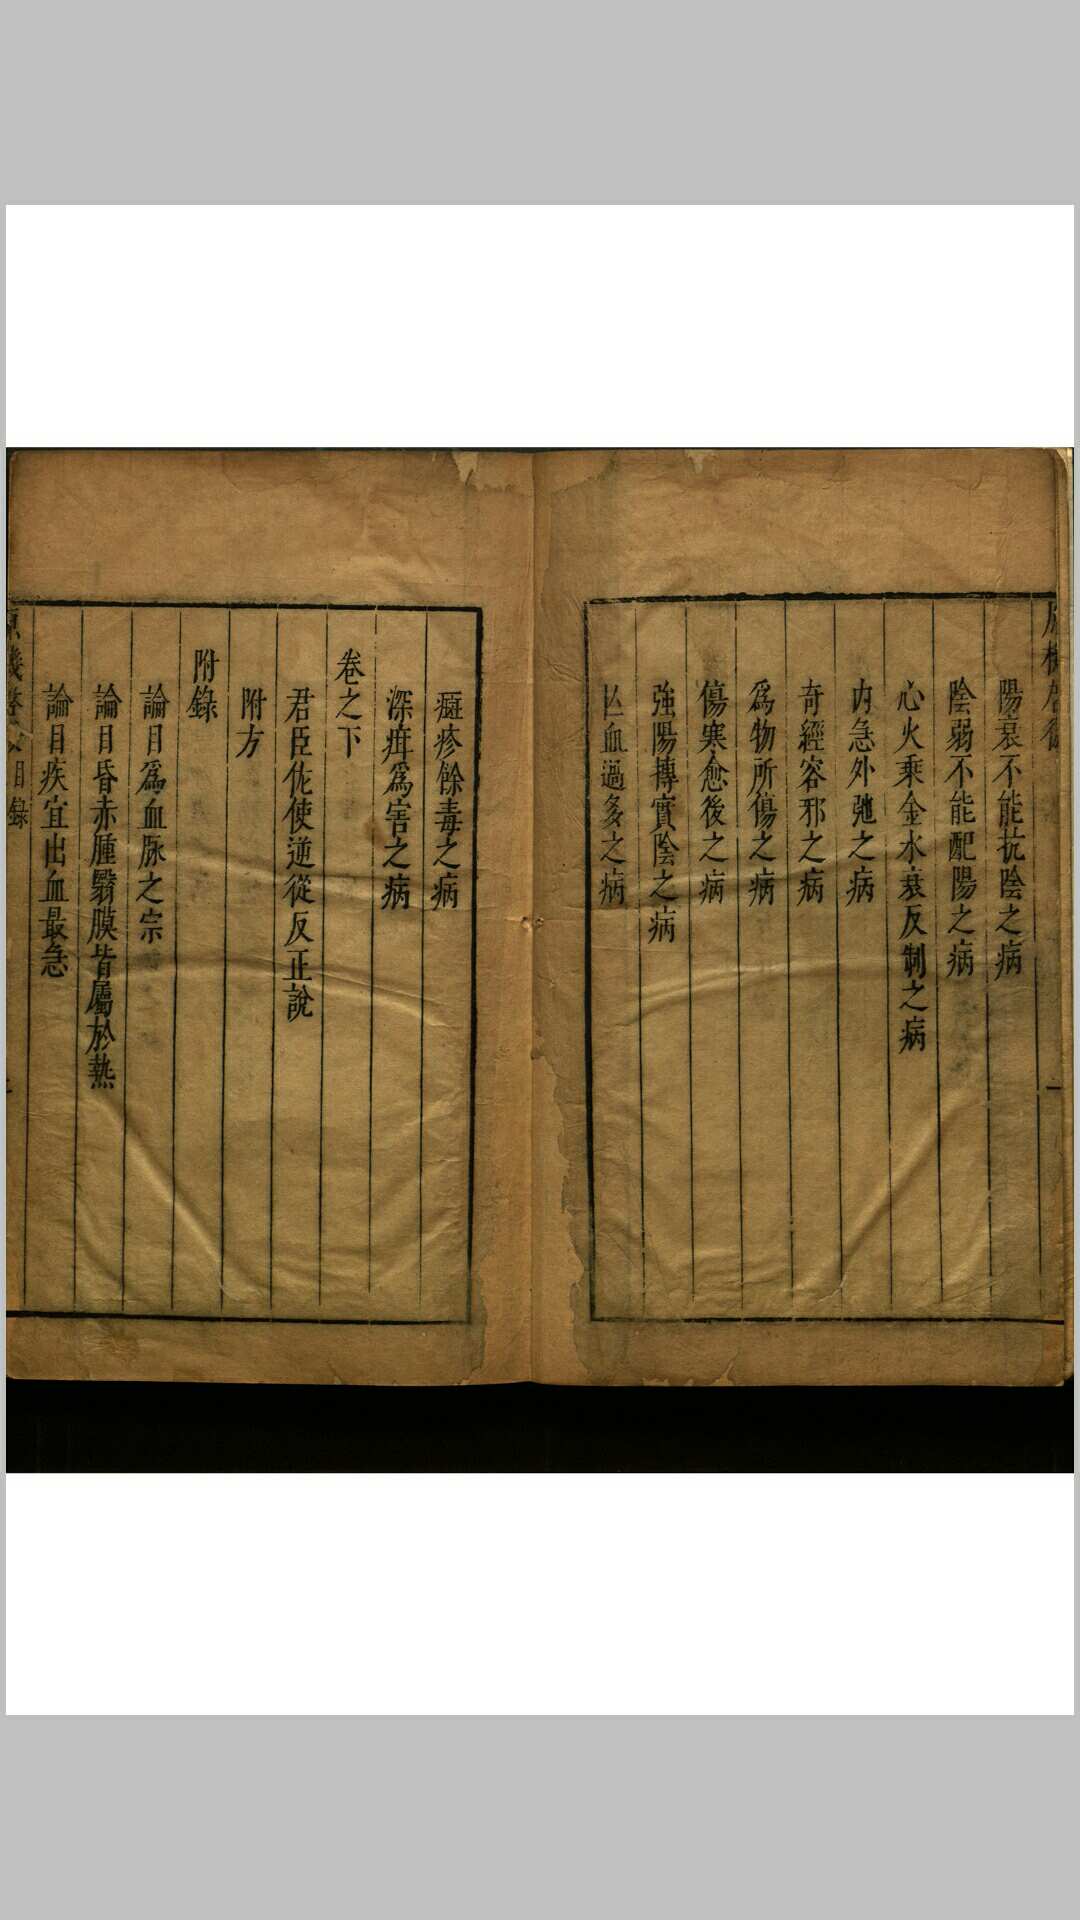 陽衰不能抗陰之病
陰弱不能配陽之病
心火乘金水衰反制之病
内急外弛之病
奇經客邪之病
爲物所傷之病
傷寒愈後之病
強陽摶實陰之病
亡血過多之病
癍疹餘毒之病
深疳爲害之病
卷之下
君臣佐使逆從反正說
附方
附錄
論目爲血脉之宗
論目昏赤腫翳膜皆屬於熱
論目疾宜出血最急
目錄